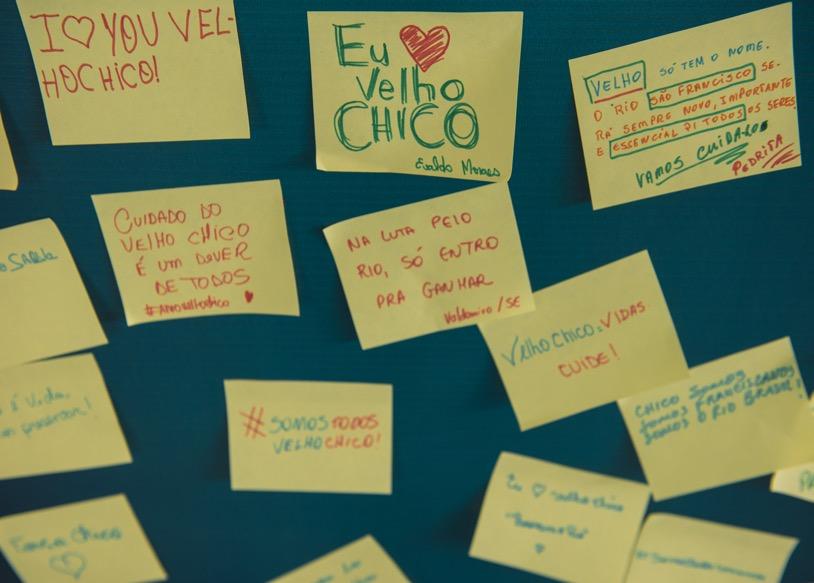 I ♡ YOU VEL-
HOCHICO!
Eu ♥
Velho
CHICO
Evaldo Moraes
VELHO SÓ TEM O NOME.
O RIO SÃO FRANCISCO SE-
RÁ SEMPRE NOVO, IMPORTANTE
E ESSENCIAL P/ TODOS OS SERES
VAMOS CUIDA-LO
PEDRITA
CUIDADO DO
VELHO CHICO
É UM DEVER
DE TODOS
NA LUTA PELO
RIO, SÓ ENTRO
PRA GANHAR
Valdomiro/SE
Velho CHICO = VIDAS
CUIDE!
É Vida,
#SOMOSTODOS
VELHOCHICO!
CHICO SOMOS
SOMOS FRANCISCANOS
SOMOS O RIO BRASIL!
Eu ♡ velho chico